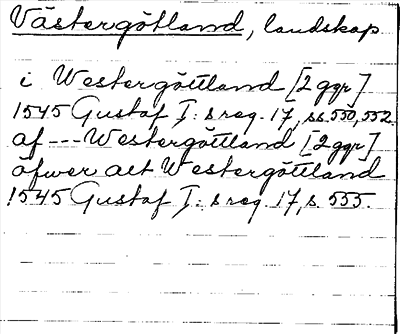 Västergötland, landskap
i Westergöttland [2 ggr]
1545 Gustaf I:s reg. 17, ss. 550, 552
af --- Westergöttland [2 ggr]
öfwer alt Westergöttland
1545 Gustaf I:s reg. 17, s. 555.